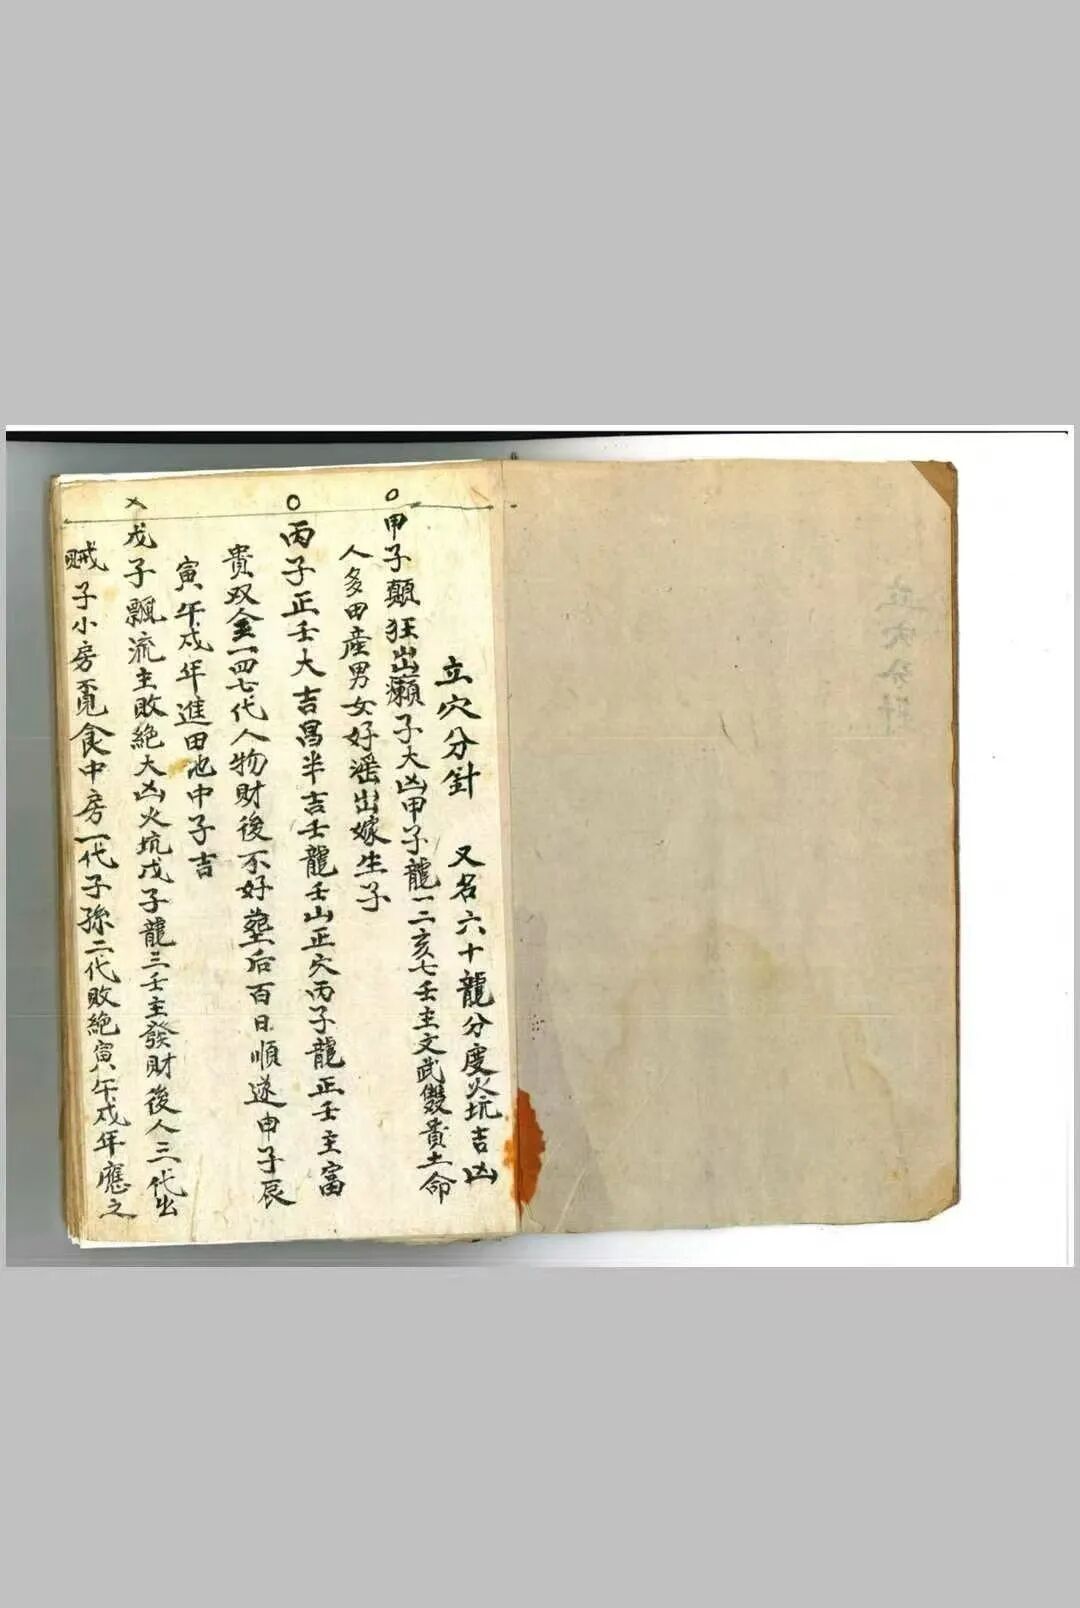 立穴分針
立穴分針 又名六十龍分度火坑吉凶
甲子顛狂出癩子大凶甲子龍一二亥七壬主文武雙貴土命
人多田產男女好滛出嫁生子
丙子正壬大吉昌半吉壬龍壬山正穴丙子龍正壬主富
貴双金一四七代人物財後不好塟后百日順遂申子辰
寅午戍年進田池中子吉
戊子飄流主敗絕大凶火坑戊子龍三壬主發財後人三代出
賊子小房覔食中房一代子孫二代敗絕寅午戍年應之